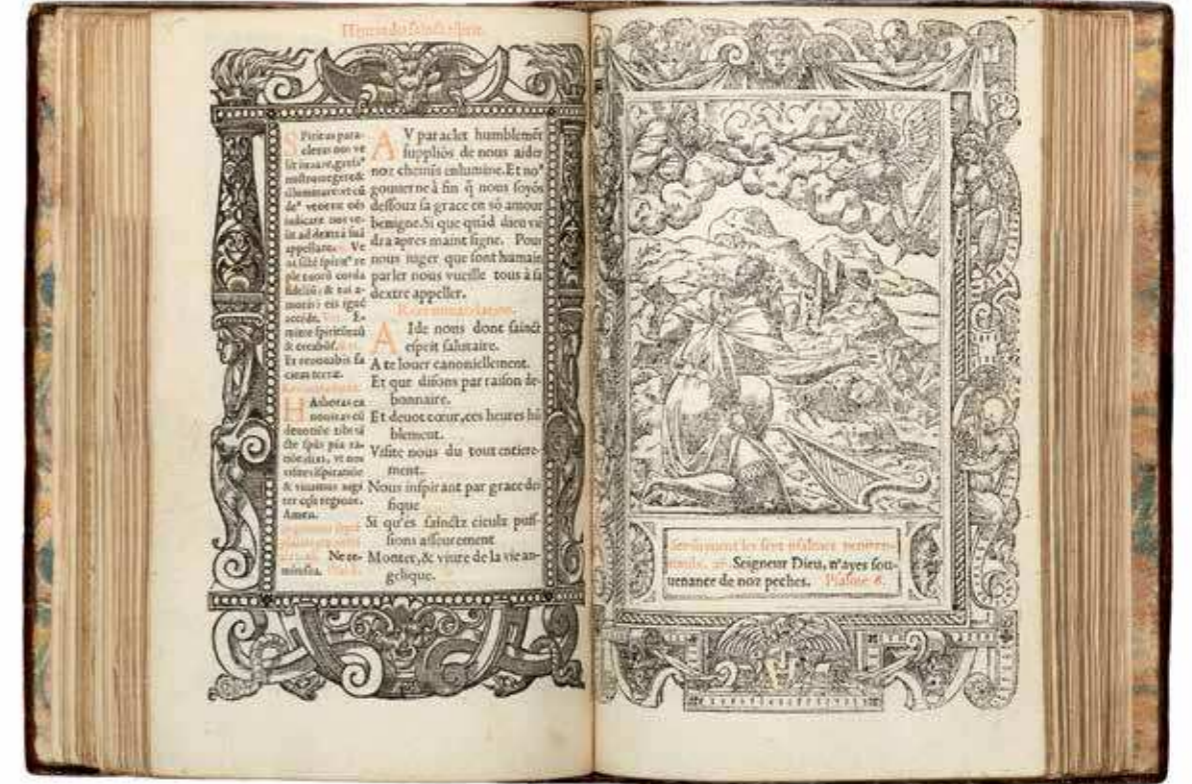 Heures du sainct esprit.
SPiritus para-
cletus nos ve
illuminare: et cũ
deꝰ venerit oẽs
iudicare nos ve-
lit ad dextrã suã
appellare. Ve
ple tuorũ corda
fideliũ: & tui a-
moris ĩ eis ignẽ
accẽde. Ver. E-
mitte spiritũ tuũ
& creabũt.
Et renouabis fa
ciem terræ.
HAs horas ca
nonicas cũ
deuotiõe tibi sã
cte spũs pia ra-
tiõe dixi, vt nos
visites ĩspiratiõe
& viuamus iugi
ter cęli regione.
Amen.
Ne re-
miniscã.
AV paraclet humblemẽt
suppliõs de nous aider
noz chemins enlumine. Et noꝰ
gouuerne à fin q̃ nous soyõs
dessouz sa grace en sõ amour
benigne. Si que quãd dieu viẽ
dra apres maint signe. Pour
nous iuger que sont humain
parler nous vueille tous à sa
dextre appeller.
Recommandation.
AIde nous dont sainct
esprit salutaire.
A te louer canoniellement.
Et que disons par raison de-
bonnaire.
Et deuot cœur, ces heures hũ
blement.
Visite nous du tout entiere-
ment.
Nous inspirant par grace dei
fique
Si qu'es sainctz cieulx puis-
sions asseurement
Monter, & viure de la vie an-
gelique.
Sensuyuent les sept psalmes peniten-
tiaulx. Seigneur Dieu, n'ayes sou-
uenance de noz peches. Psalme 6.